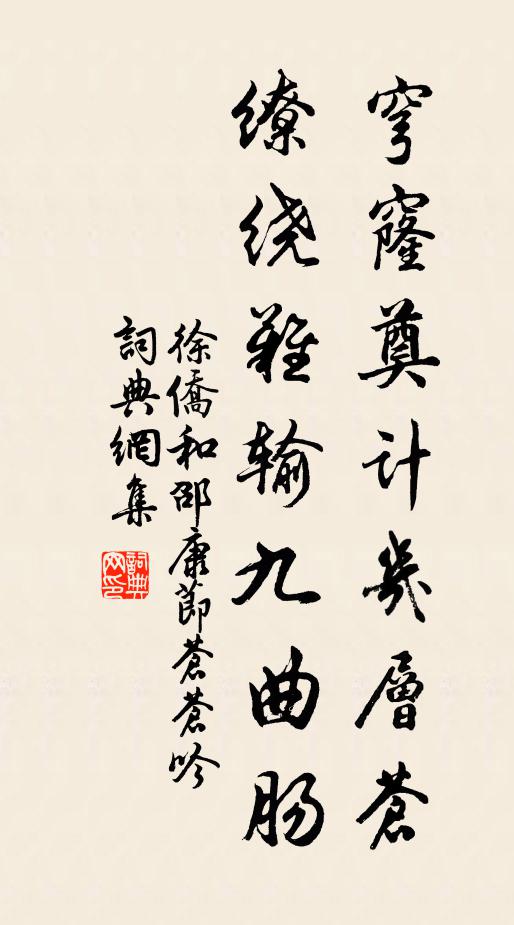 穹窿奠计幾層蒼
缭绕難输九曲肠
徐僑和邵康節蒼蒼吟
詞典網集
詞典网印